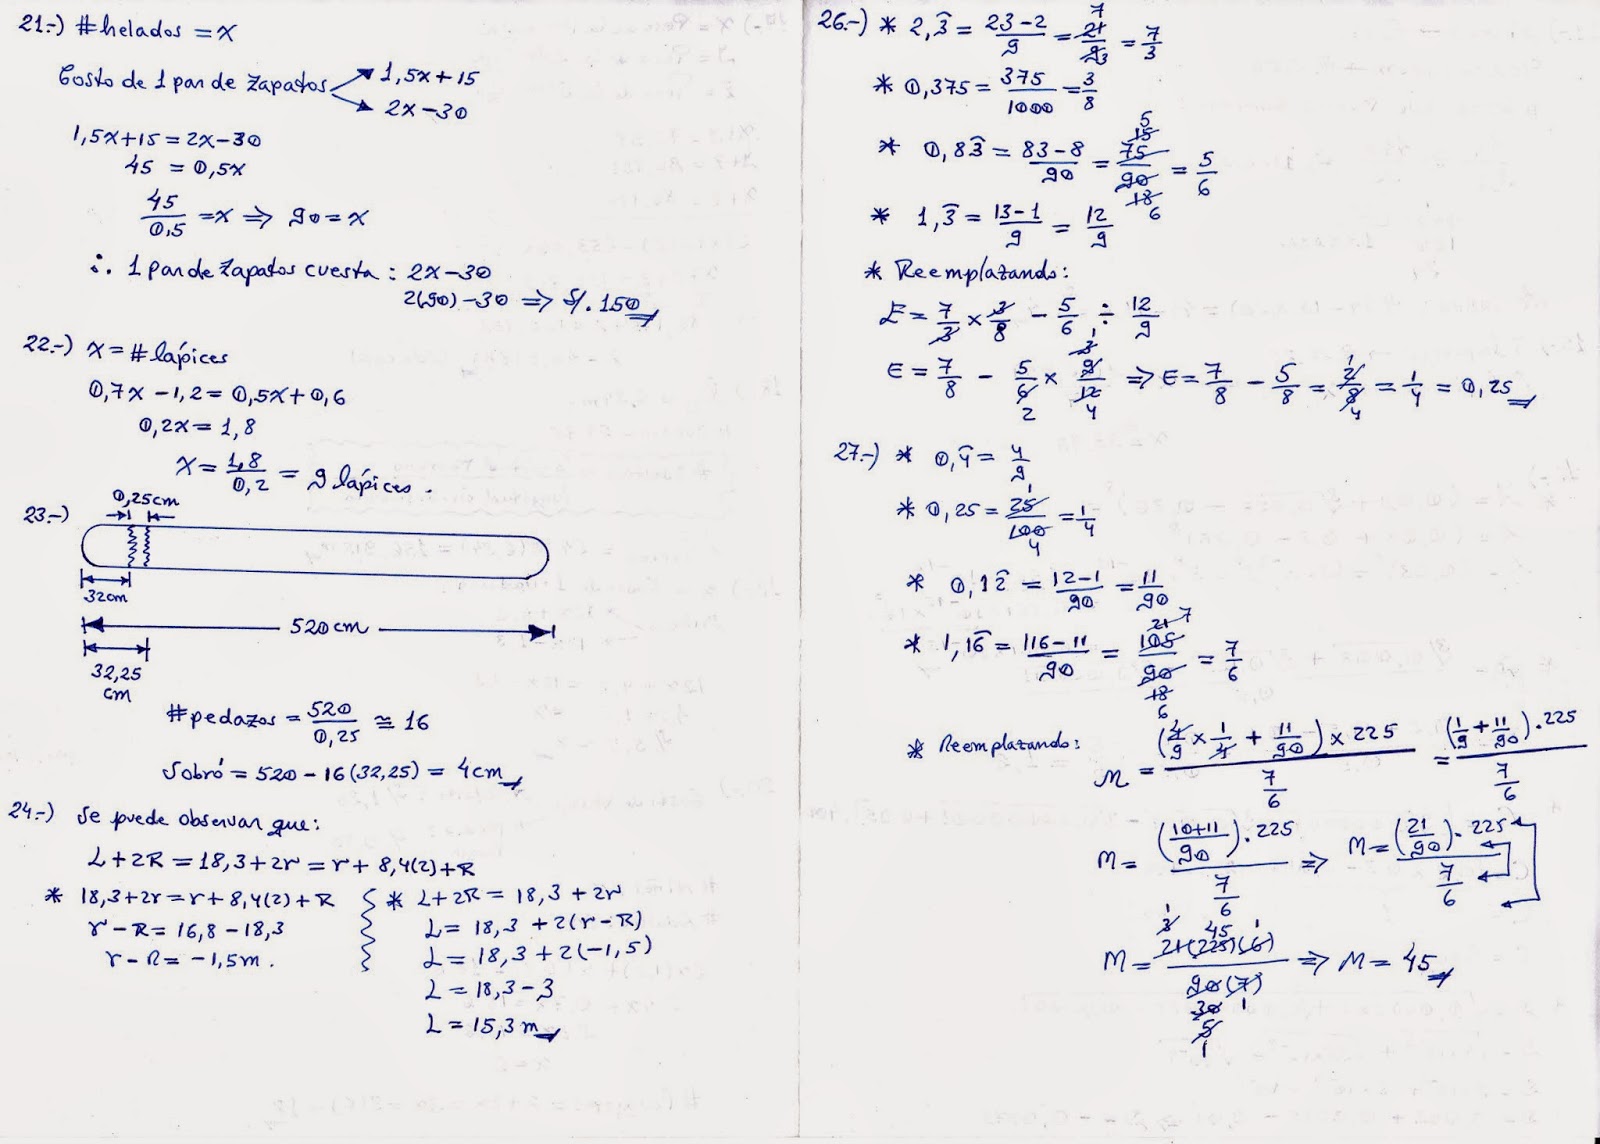 21.-) # helados = x
Costo de 1 par de zapatos
1,5x+15
2x-30
1,5x+15 = 2x-30
45 = 0,5x
45/0,5 = x ⇒ 90 = x
∴ 1 par de zapatos cuesta : 2x-30
2(90)-30 ⇒ S/. 150
22.-) x = # lápices
0,7x - 1,2 = 0,5x + 0,6
0,2x = 1,8
x = 1,8/0,2 = 9 lápices.
23.-)
0,25cm
32cm
520cm
32,25
cm
# pedazos = 520/0,25 ≅ 16
Sobró = 520 - 16(32,25) = 4cm
24.-) Se puede observar que:
L + 2R = 18,3 + 2r = r + 8,4(2) + R
* 18,3 + 2r = r + 8,4(2) + R
r - R = 16,8 - 18,3
r - R = -1,5m.
* L + 2R = 18,3 + 2r
L = 18,3 + 2(r - R)
L = 18,3 + 2(-1,5)
L = 18,3 - 3
L = 15,3 m
26.-) * 2,3̂ = 23-2/9 = 21/9 7 3 = 7/3
* 0,375 = 375/1000 = 3/8
* 0,83̂ = 83-8/90 = 75/90 15 5 18 6 = 5/6
* 1,3̂ = 13-1/9 = 12/9
* Reemplazando:
E = 7/3 x 3/8 - 5/6 ÷ 12/9
E = 7/8 - 5/6 2 x 9/12 3 1 4 ⇒ E = 7/8 - 5/8 = 2/8 1 4 = 1/4 = 0,25
27.-) * 0,4̂ = 4/9
* 0,25 = 25/100 1 4 = 1/4
* 0,12̂ = 12-1/90 = 11/90
* 1,16̂ = 116-11/90 = 105/90 21 7 18 6 = 7/6
* Reemplazando: M = (4/9 x 1/4 + 11/90) x 225 / 7/6 = (1/9 + 11/90).225 / 7/6
M = (10+11/90).225 / 7/6 ⇒ M = (21/90).225 / 7/6
M = 21(225)(6) / 90(7) 3 1 45 1 30 1 5 1 ⇒ M = 45